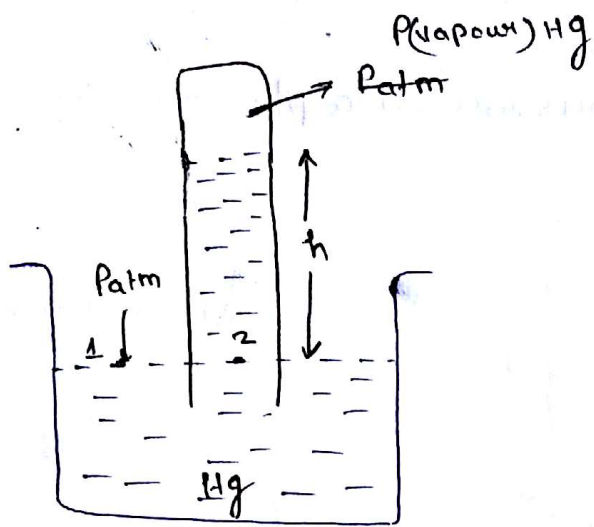 P(vapour) Hg
Patm
h
Patm
1
2
Hg